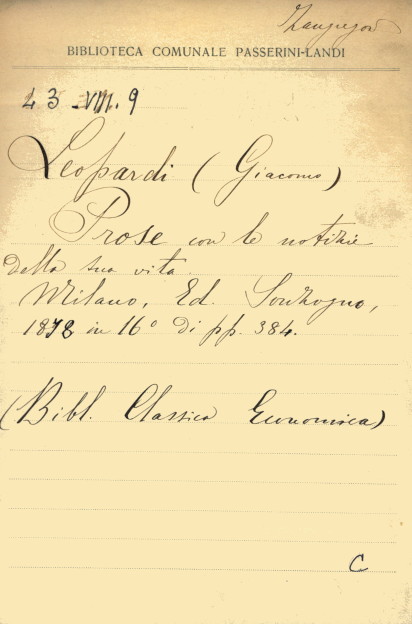 BIBLIOTECA COMUNALE PASSERINI-LANDI
43-VIII.9
Leopardi (Giacomo)
Prose con le notizie
della sua vita.
Milano, Ed. Sonzogno,
1878 in 16° di pp. 384.
(Bibl. Classica Economica)
C